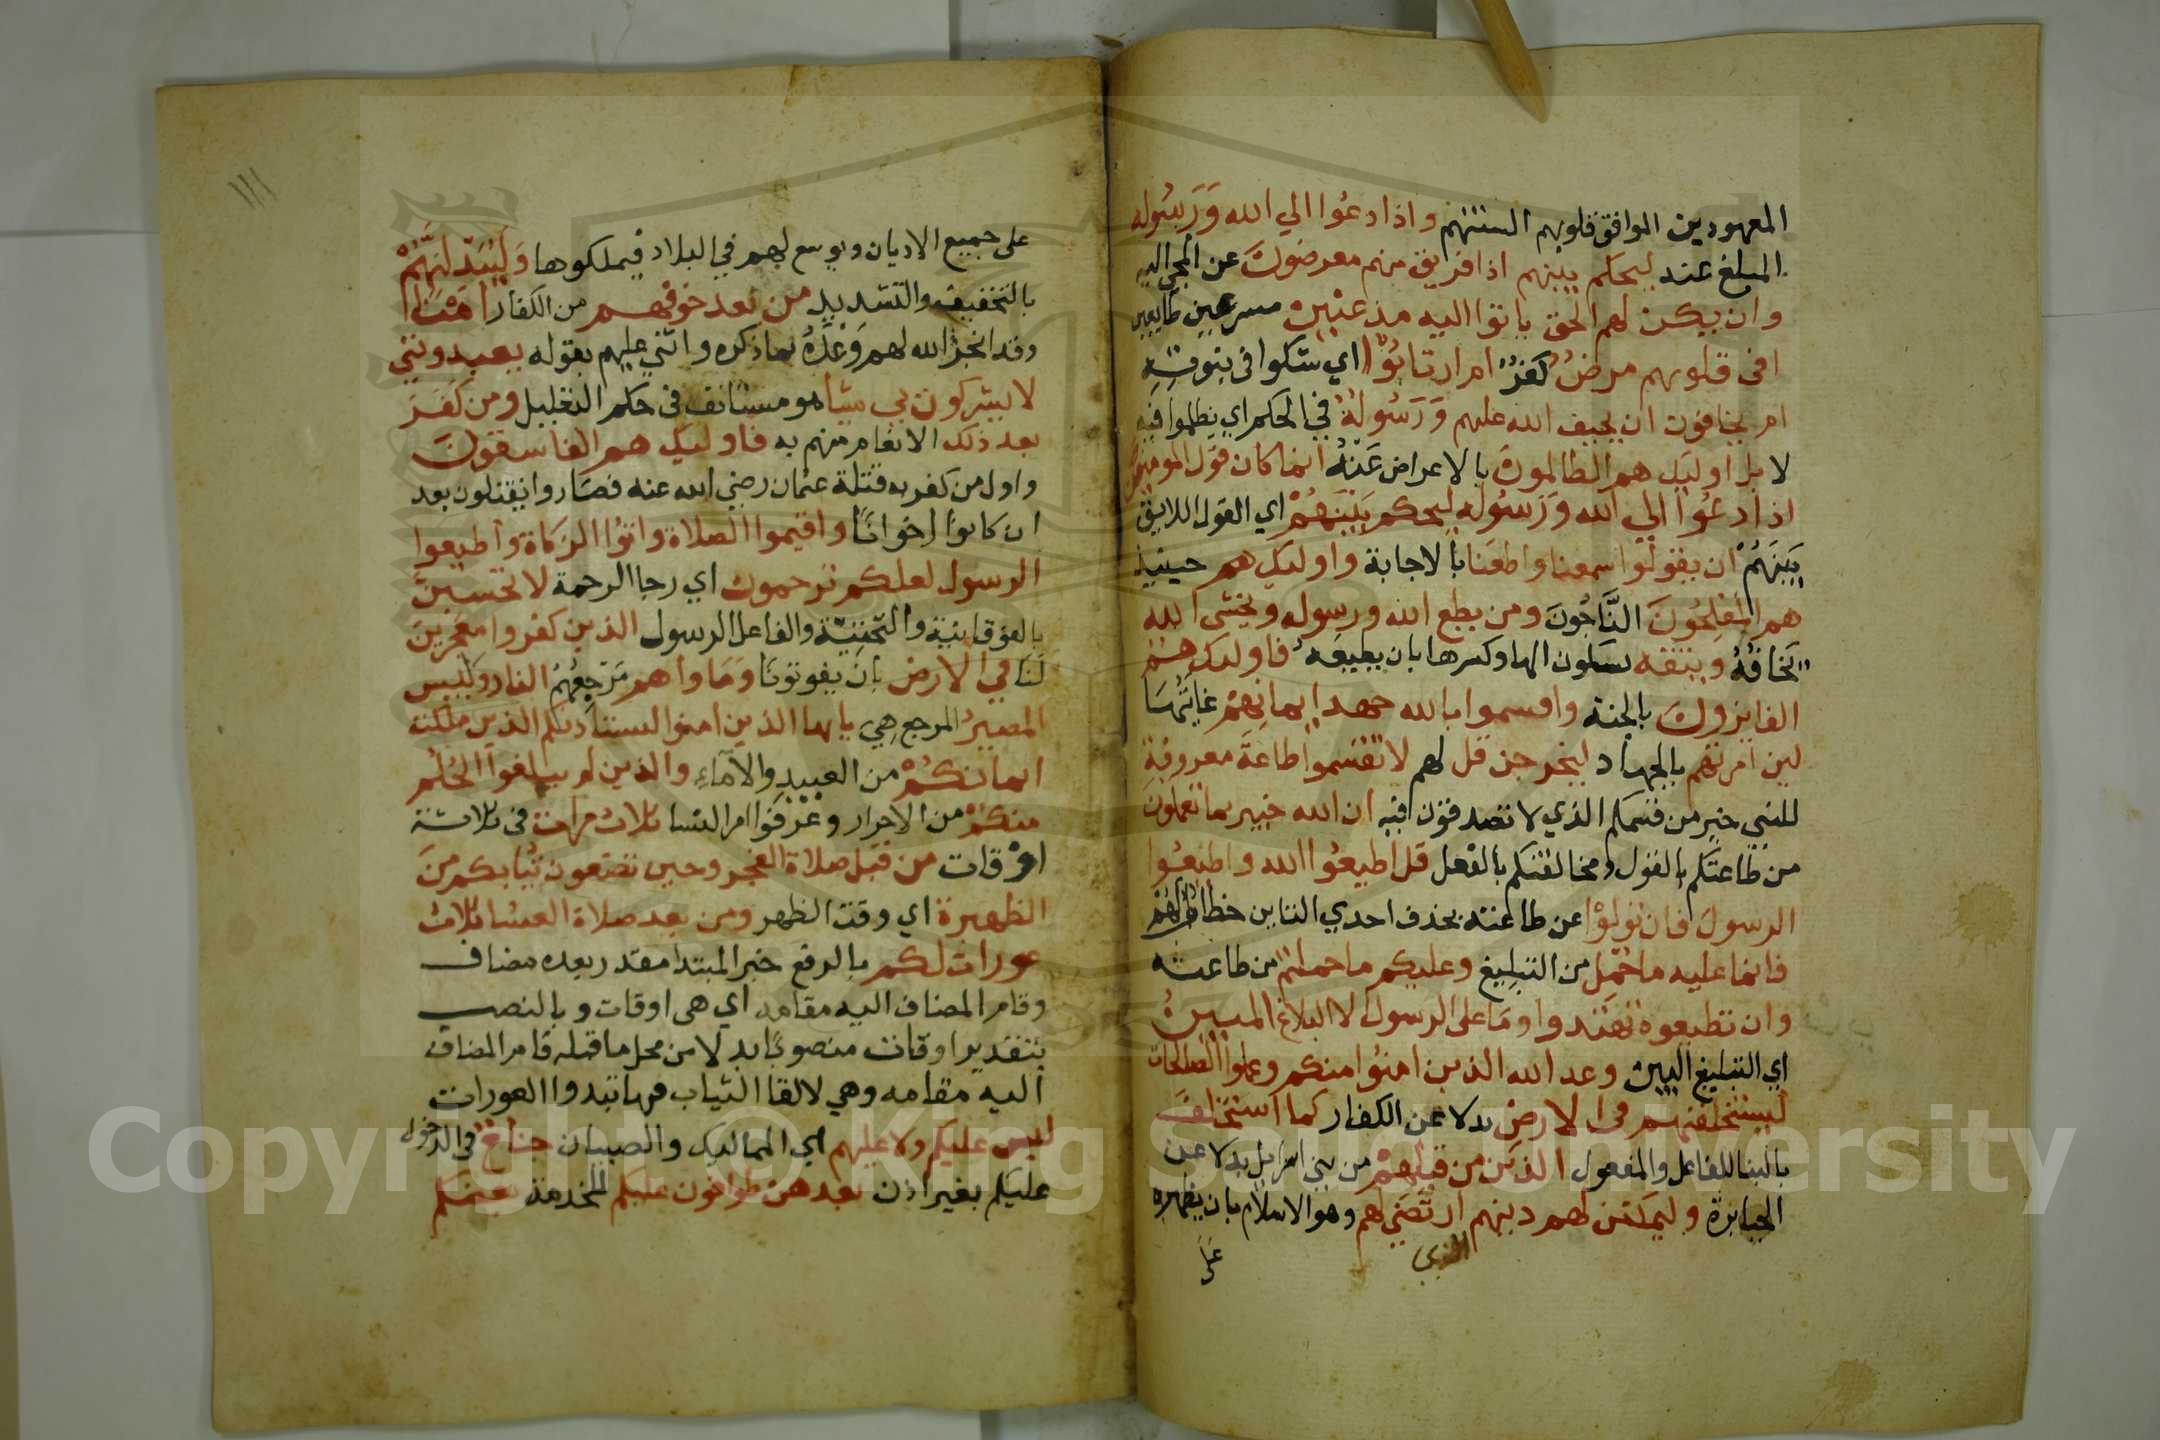 المعهودين الموافق قلوبهم السنتهم واذا دعوا الي الله وَرَسُوله
المبلغ عنه ليحكم بينهم اذا فريق منهم معرضون عن المجي اليه
وان يكن لهم الحق ياتوا اليه مذعنين مسرعين طايعين
افي قلوبهم مرضٌ كفرٌ ام ارتابُوْا اي شكوا في نبوته
ام يخافون ان يحيف الله عليهم وَرَسُولُهُ في الحكم اي يظلموا فيه
لا بل اوليك هم الظالمون بالاعراض عَنْهُ انما كان قول المومنين
اذا دعُوا الي الله وَرَسُوله ليحكم بَيْنَهُمْ اي القول اللايق
بَيْنَهُمْ ان يقولوا سمعنا واطعنا بالاجابة واوليك هم حينيذ
هم المفلحُونَ النَّاجُونَ ومن يطع الله ورسوله ويخشى الله
يَخافهُ ويتقه بسكون الها وكسرها بان يطيعَه فاوليك هُم
الفايزون بالجنة واقسموا بالله جهد ايمانِهِمْ غايَتَهَا
لين امرتهم بالجهاد ليخرجن قل لهم لا تقسموا طاعَة معروفة
للنبي خير من قسمكم الذي لا تصدقون فيه ان الله خبير بما تعملون
من طاعتكم بالقول ومخالفتكم بالفعل قل اطيعُوا الله واطيعُوا
الرسول فان تولوْا عن طاعته بحذف احدي التاين خطاب لهم
فانما عليه ما حُمّل من التبليغ وعليكم ما حملتم من طاعته
وان تطيعوه تهتدوا ومَا على الرسول الا البلاغ المبين
اي التبليغ البين وعد الله الذين امنُوا منكم وعملوا الصالحات
ليستخلفنهم في الارض بدلا عن الكفار كما استخلف
بالبنا للفاعل والمفعول الذين من قبلهمْ من بني اسرايل بدلا عن
الجبابرة وليمكنن لهم دينهم ارتضي لهم وهو الاسلام بان يظهره
الذي
علي
١١١
على جميع الاديان ويوسع لهم في البلاد فيملكوها وَلَيُبَدّلَنَّهُمْ
بالتخفيف والتشديد من بعد خوفهم من الكفار امْنًا
وقد انجز الله لهم وَعْدَهُ بما ذكره واثني عليهم بقوله يعبدونني
لا يشركون بي شيا هو مستانف في حكم التعليل ومن كفَرَ
بعد ذلك الانعام منهم به فاوليك هم الفاسقونَ
واول من كفر به قتلة عثمان رضي الله عنه فصَاروا يقتتلون بعد
ان كانوا اخوانًا واقيموا الصلاة واتوُا الزكاة واطيعوا
الرسول لعلكم ترحمون اي رجا الرحمة لا تحسبنَّ
بالفوقانية والتحتية والفاعل الرسول الذين كفروا معجزين
لنَا في الارض بان يفوتونا وَمَاواهم مَرْجعُهُمُ النار وَلَبيس
المصيرُ المرجع هِيَ يايها الذين امنوا ليستاذنكم الذين ملكت
ايمانكُمْ من العبيد والاماء والذين لم يبلغوا الحُلُم
منكمْ من الاحرار وعَرَفوا امر النسا ثلاث مرات في ثلاثة
اوْقات من قبل صلاة الفجر وحين تضعون ثيابكم منَ
الظهيرة اي وقت الظهر ومن بعد صلاة العشا ثلاث
عورات لكم بالرفع خبر المبتدا مقدر بعده مضاف
وقام المضاف اليه مقامه اي هي اوقات وبالنصب
بتقدير اوقات منصوبًا بدلا من محل ما قبله قام المضاف
اليه مقامه وهي لالقا الثياب فيها تبدوا العورات
ليس عليكم ولا عليهم اي المماليك والصبيان جناحٌ في الدخول
عليكم بغير اذن بعدهن طوافون عليكم للخدمة بعضكم
Copyright © King Saud University